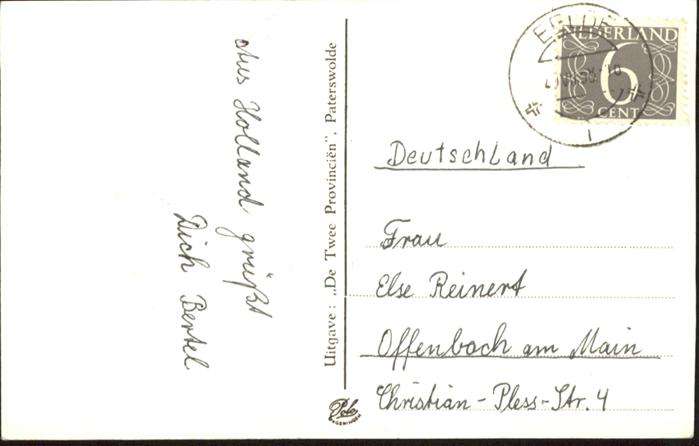 Aus Holland grüßt
Dich Bertel
Uitgave: „De Twee Provinciën", Paterswolde
NEDERLAND
6
CENT
Deutschland
Frau
Else Reinert
Offenbach am Main
Christian-Pless-Str. 4